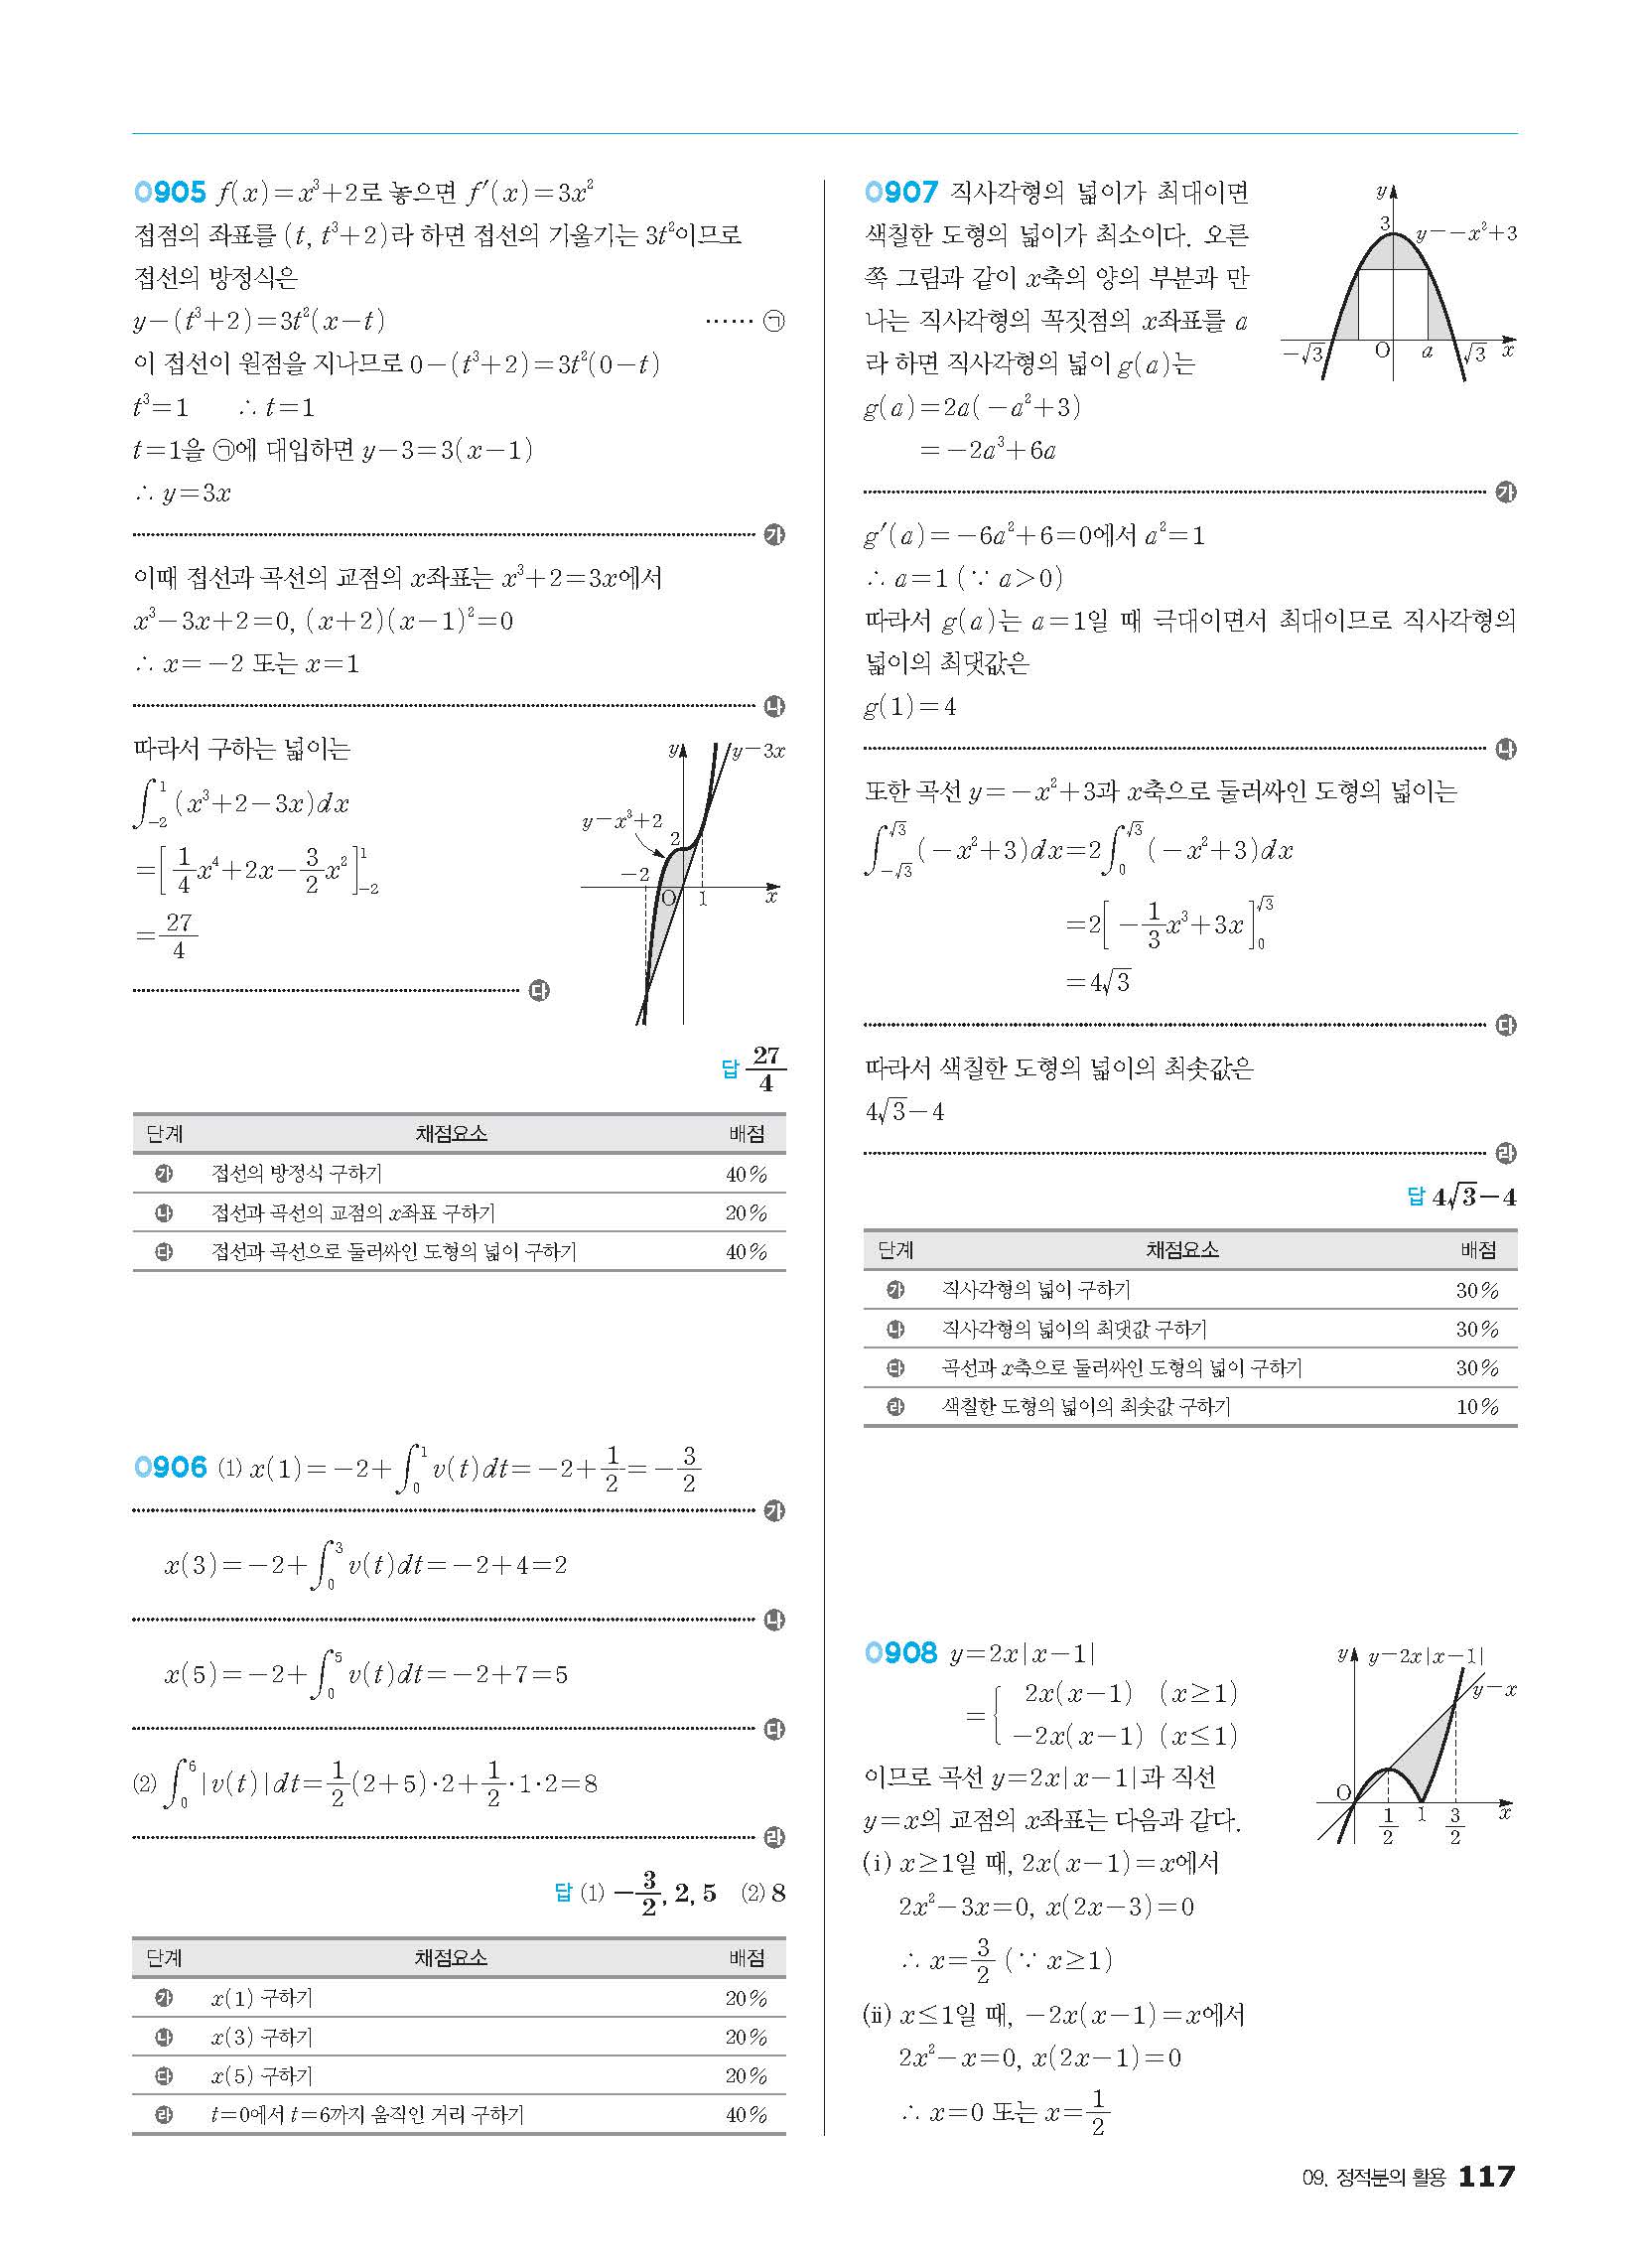 0905 f(x)=x³+2로 놓으면 f′(x)=3x²
접점의 좌표를 (t, t³+2)라 하면 접선의 기울기는 3t²이므로
접선의 방정식은
y-(t³+2)=3t²(x-t) …… ㉠
이 접선이 원점을 지나므로 0-(t³+2)=3t²(0-t)
t³=1 ∴ t=1
t=1을 ㉠에 대입하면 y-3=3(x-1)
∴ y=3x
가
이때 접선과 곡선의 교점의 x좌표는 x³+2=3x에서
x³-3x+2=0, (x+2)(x-1)²=0
∴ x=-2 또는 x=1
나
따라서 구하는 넓이는
∫₋₂¹ (x³+2-3x)dx
=[1/4 x⁴+2x-3/2 x²]₋₂¹
=27/4
다
y y=3x
y=x³+2
2
-2
O 1 x
답 27/4
단계 채점요소 배점
가 접선의 방정식 구하기 40%
나 접선과 곡선의 교점의 x좌표 구하기 20%
다 접선과 곡선으로 둘러싸인 도형의 넓이 구하기 40%
0906 (1) x(1)=-2+∫₀¹ v(t)dt=-2+1/2=-3/2
가
x(3)=-2+∫₀³ v(t)dt=-2+4=2
나
x(5)=-2+∫₀⁵ v(t)dt=-2+7=5
다
(2) ∫₀⁶ |v(t)|dt=1/2(2+5)·2+1/2·1·2=8
라
답 (1) -3/2, 2, 5 (2) 8
단계 채점요소 배점
가 x(1) 구하기 20%
나 x(3) 구하기 20%
다 x(5) 구하기 20%
라 t=0에서 t=6까지 움직인 거리 구하기 40%
0907 직사각형의 넓이가 최대이면
색칠한 도형의 넓이가 최소이다. 오른
쪽 그림과 같이 x축의 양의 부분과 만
나는 직사각형의 꼭짓점의 x좌표를 a
라 하면 직사각형의 넓이 g(a)는
g(a)=2a(-a²+3)
=-2a³+6a
y
3 y=-x²+3
-√3 O a √3 x
가
g′(a)=-6a²+6=0에서 a²=1
∴ a=1 (∵ a>0)
따라서 g(a)는 a=1일 때 극대이면서 최대이므로 직사각형의
넓이의 최댓값은
g(1)=4
나
또한 곡선 y=-x²+3과 x축으로 둘러싸인 도형의 넓이는
∫_{-√3}^{√3} (-x²+3)dx=2∫₀^{√3} (-x²+3)dx
=2[-1/3 x³+3x]₀^{√3}
=4√3
다
따라서 색칠한 도형의 넓이의 최솟값은
4√3-4
라
답 4√3-4
단계 채점요소 배점
가 직사각형의 넓이 구하기 30%
나 직사각형의 넓이의 최댓값 구하기 30%
다 곡선과 x축으로 둘러싸인 도형의 넓이 구하기 30%
라 색칠한 도형의 넓이의 최솟값 구하기 10%
0908 y=2x|x-1|
={ 2x(x-1) (x≥1)
-2x(x-1) (x≤1)
이므로 곡선 y=2x|x-1|과 직선
y=x의 교점의 x좌표는 다음과 같다.
y y=2x|x-1|
y=x
O 1/2 1 3/2 x
(i) x≥1일 때, 2x(x-1)=x에서
2x²-3x=0, x(2x-3)=0
∴ x=3/2 (∵ x≥1)
(ii) x≤1일 때, -2x(x-1)=x에서
2x²-x=0, x(2x-1)=0
∴ x=0 또는 x=1/2
09. 정적분의 활용 117